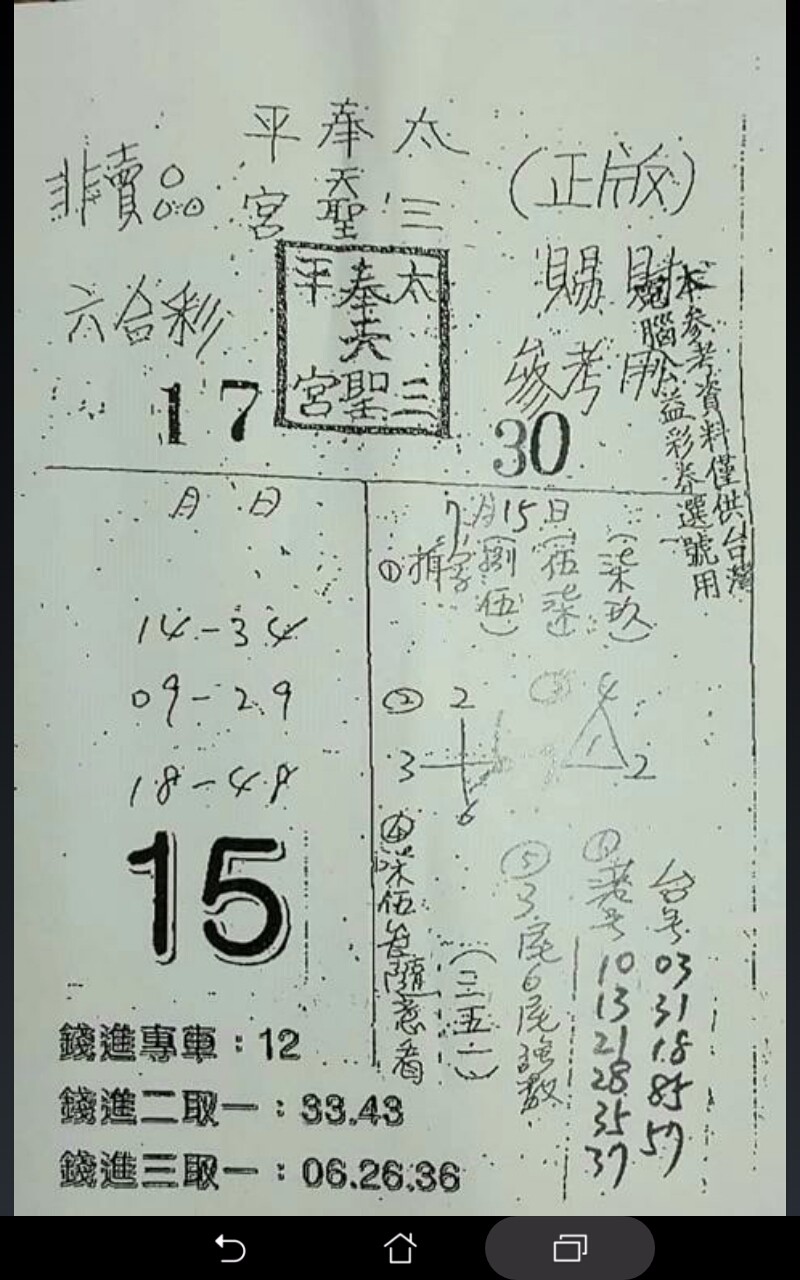 太 奉 平
三 天聖 宮
非賣品
(正版)
六合彩
太三
奉天聖
平宮
賜財
參考用
本參考資料僅供台灣
電腦公益彩券選號用
17
30
月 日
14-34
09-29
18-48
15
錢進專車:12
錢進二取一:33.43
錢進三取一:06.26.36
7月15日
①
字
(捌伍)
(伍柒)
(柒玖)
② 2
3
6
③ 4
1
2
④柒伍
隨意看
(三五一)
⑤3尾6尾強數
港号
10
13
21
28
35
37
台号
03
31
18
85
57